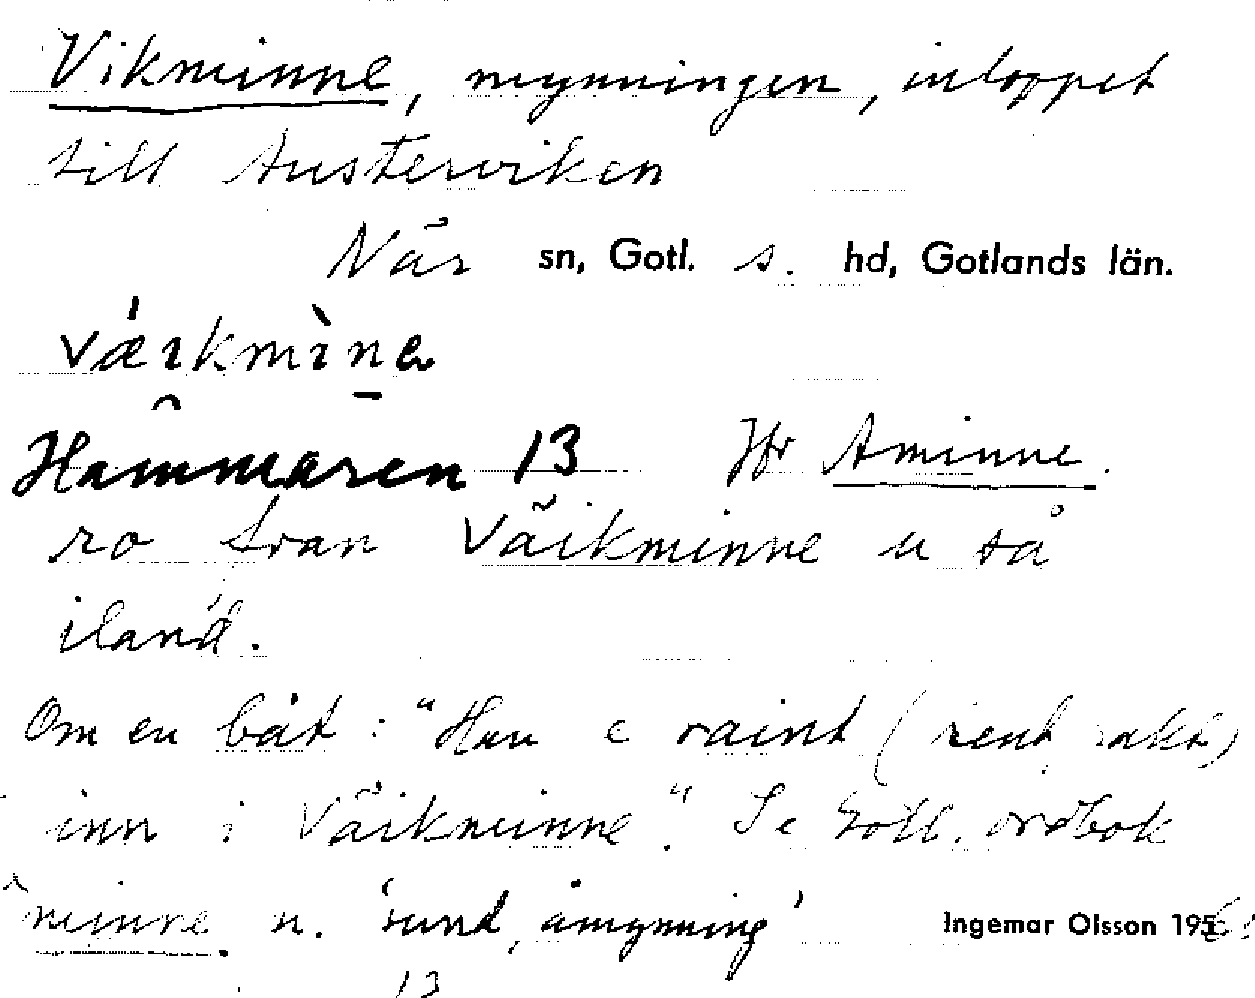 Vikminne, mynningen, inloppet
till Austerviken
När sn, Gotl. s. hd, Gotlands län.
væikmìne
Hammaren 13 Jfr Åminne.
ro fran Väikminne u så
iland.
Om en båt: "Han e raint (rent, rakt)
inn i Väikminne." Se Gotl. ordbok
minne n. 'sund, åmynning'
Ingemar Olsson 195
13